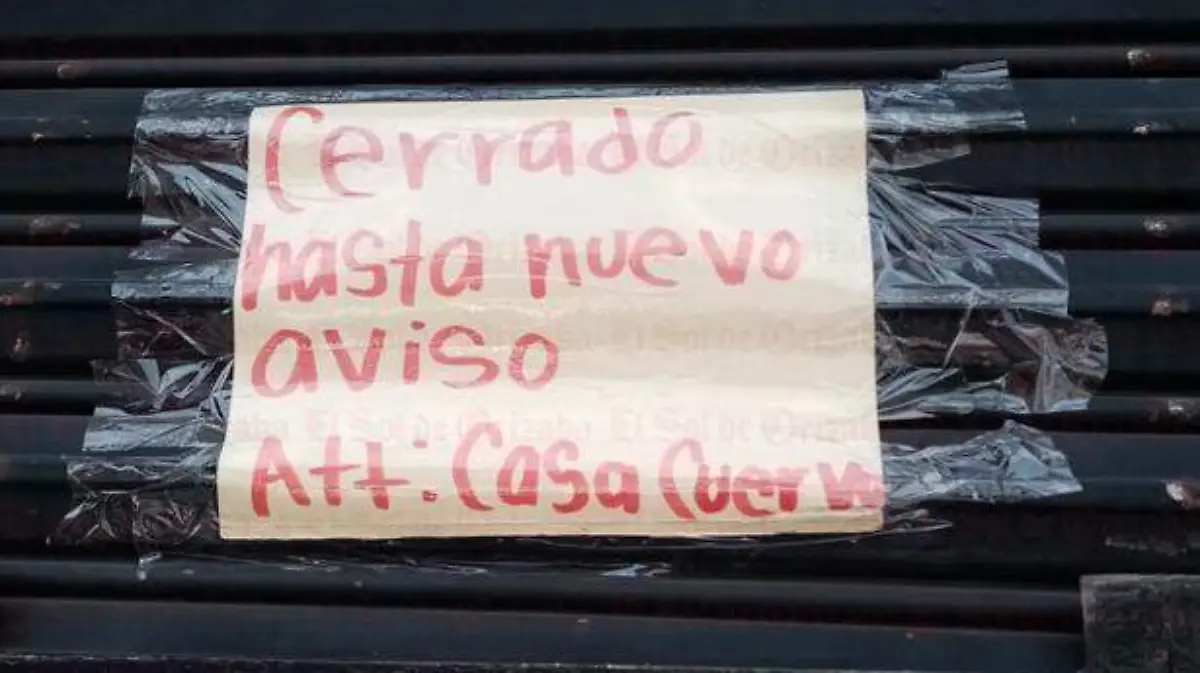 Cerrado
hasta nuevo
aviso
Att: Casa Cuervo
El Sol de Orizaba El Sol de Orizaba